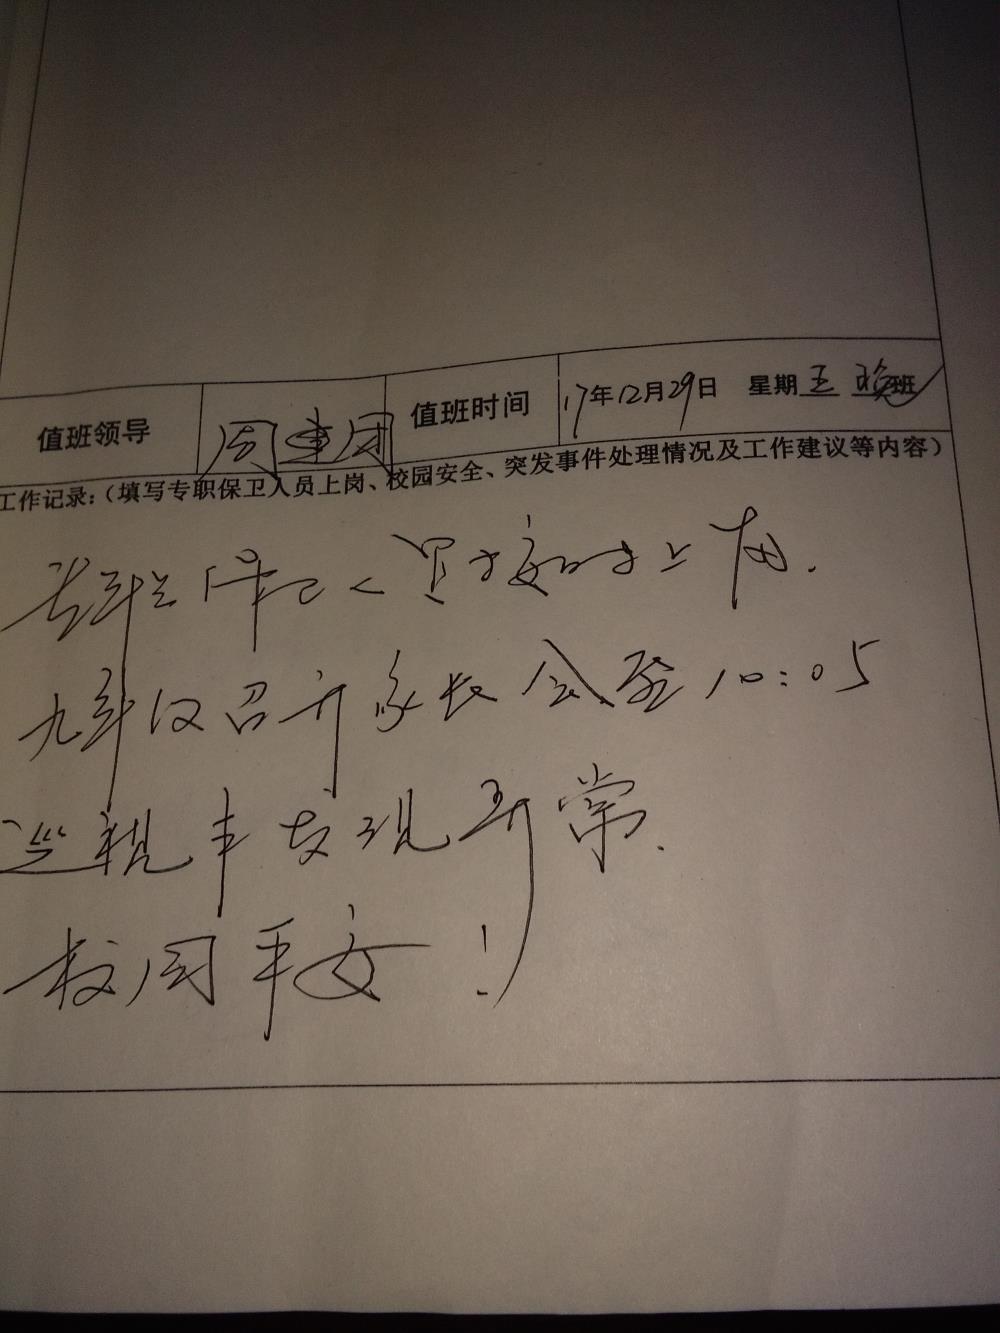 值班领导 周建国 值班时间 17年12月29日 星期五 晚班
工作记录：（填写专职保卫人员上岗、校园安全、突发事件处理情况及工作建议等内容）
专职保卫人员按时上岗.
九年级召开家长会至10:05
巡视未发现异常.
校园平安！